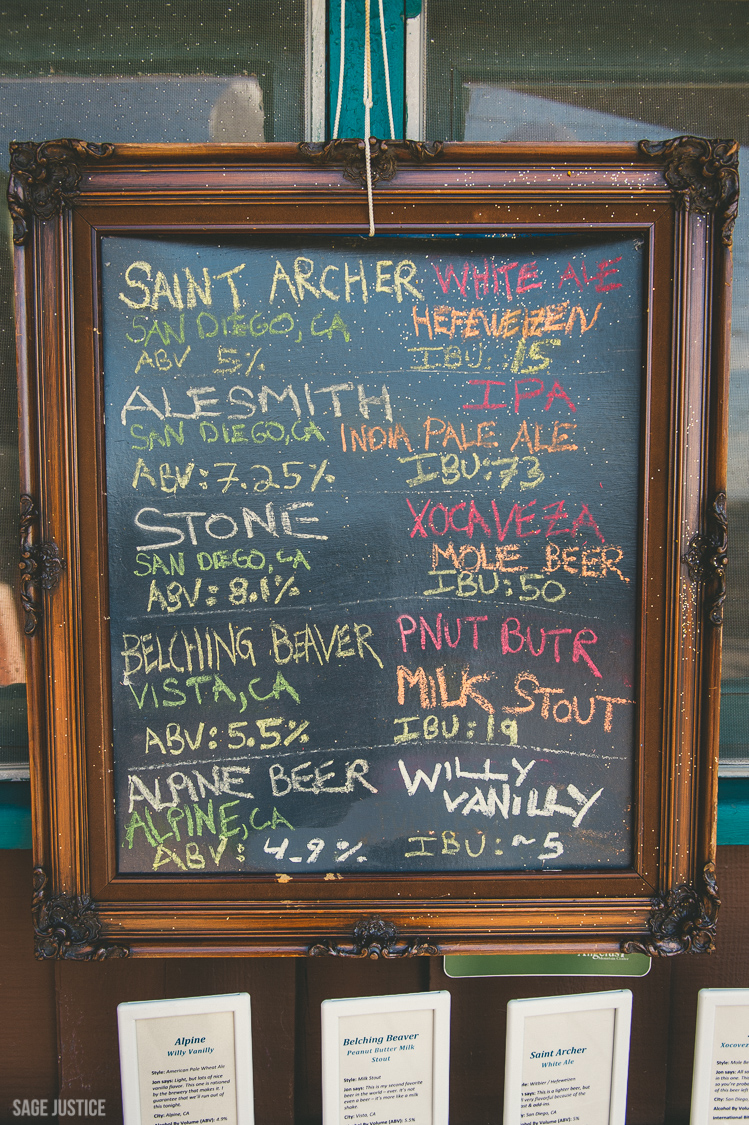 SAINT ARCHER WHITE ALE
SAN DIEGO, CA HEFEWEIZEN
ABV 5% IBU: 15
ALESMITH IPA
SAN DIEGO, CA INDIA PALE ALE
ABV: 7.25% IBU: 73
STONE XOCAVEZA
SAN DIEGO, CA MOLE BEER
ABV: 8.1% IBU: 50
BELCHING BEAVER PNUT BUTR
VISTA, CA MILK STOUT
ABV: 5.5% IBU: 19
ALPINE BEER WILLY
VANILLY
ALPINE, CA
ABV: 4.9% IBU: ~5
Alpine
Willy Vanilly
Style: American Pale Wheat Ale
Jon says: Light, but lots of nice
vanilla flavor. This one is rationed
by the brewery that makes it. I
guarantee that we'll run out of
this tonight.
City: Alpine, CA
Alcohol By Volume (ABV): 4.9%
Belching Beaver
Peanut Butter Milk
Stout
Style: Milk Stout
Jon says: This is my second favorite
beer in the world – ever. It's not
even a beer – it's more like a milk
shake.
City: Vista, CA
Alcohol By Volume (ABV): 5.5%
Saint Archer
White Ale
Witbier / Hefeweizen
This is a lighter beer, but
very flavorful because of the
& add-ins.
San Diego, CA
By Volume (ABV): 5%
Xocavez
Style: Mole Be
Jon says: All
in this one. Th
so you're proba
of this bef
City: San Diego
Alcohol By Vol
SAGE JUSTICE